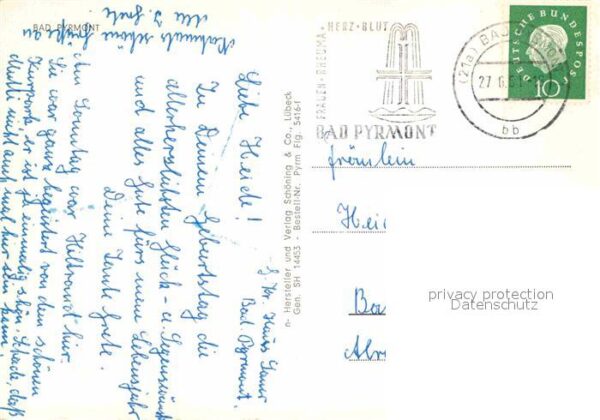 BAD PYRMONT
Nochmals schöne
Grüße an
z. Zt. Haus
Bad Pyrmont.
Liebe Heide!
Zu Deinem Geburtstag die
allerherzlichsten Glück- u. Segenswünsche
und alles Gute fürs neue Lebensjahr
Deine Tante Grete.
Am Sonntag war Hiltraud hier.
Sie war ganz begeistert von dem schönen
Kurpark, er ist ja einmalig schön. Schade, daß
Mutti nicht auch mal hier sein kann!
n- Hersteller und Verlag Schöning & Co., Lübeck
Gen. SH 14453 - Bestell-Nr. Pyrm Flg. 5416-f
FRAUEN-RHEUMA-HERZ-BLUT
BAD PYRMONT
(21a) BAD
27.6.61
bb
DEUTSCHE BUNDESPOST
10
Fräulein
Hei
Ba
privacy protection
Datenschutz